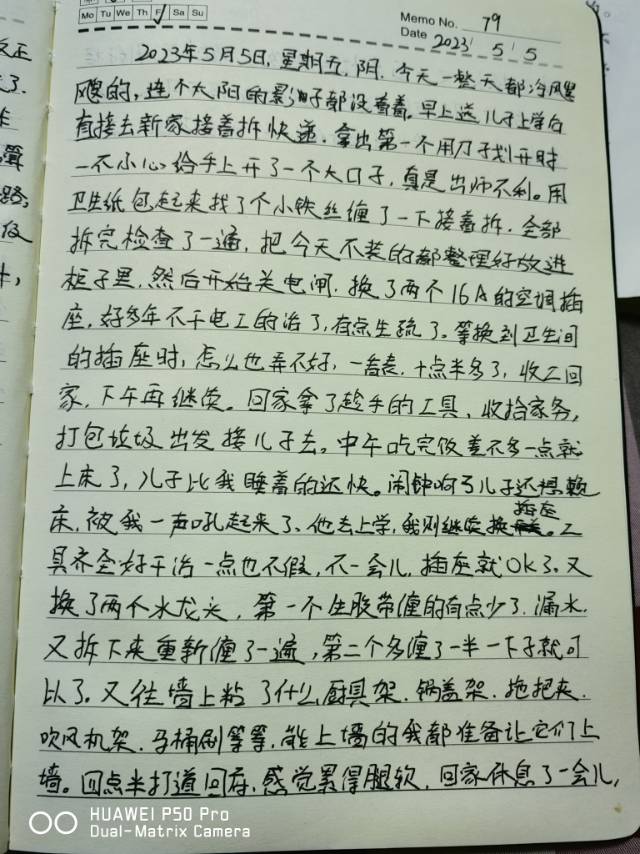 Mo Tu We Th Fr Sa Su
Memo No. 79
Date 2023 / 5 / 5
2023年5月5日,星期五,阴.今天一整天都冷飕
飕的,连个太阳的影子都没看着。早上送儿子上学后
直接去新家接着拆快递.拿出第一个用刀子划开时
一不小心给手上开了一个大口子,真是出师不利。用
卫生纸包起来找了个小铁丝缠了一下接着拆.全部
拆完检查了一遍,把今天不装的都整理好放进
柜子里.然后开始关电闸.换了两个16A的空调插
座,好多年不干电工的活了,有点生疏了。等换到卫生间
的插座时,怎么也弄不好,一看表,十点半多了,收工回
家,下午再继续。回家拿了趁手的工具、收拾家务,
打包垃圾出发接儿子去。中午吃完饭差不多一点就
上床了,儿子比我睡着的还快。闹钟响了儿子还想赖
床,被我一声吼起来了、他去上学,我则继续换插座。工
具齐全好干活一点也不假,不一会儿,插座就OK了.又
换了两个水龙头,第一个生胶带缠的有点少了.漏水.
又拆下来重新缠了一遍,第二个多缠了一半一下子就可
以了。又往墙上粘了什么厨具架.锅盖架.拖把夹.
吹风机架.马桶刷等等,能上墙的我都准备让它们上
墙。四点半打道回府,感觉累得腿软,回家休息了一会儿,
反正
了.
路,
HUAWEI P50 Pro
Dual-Matrix Camera